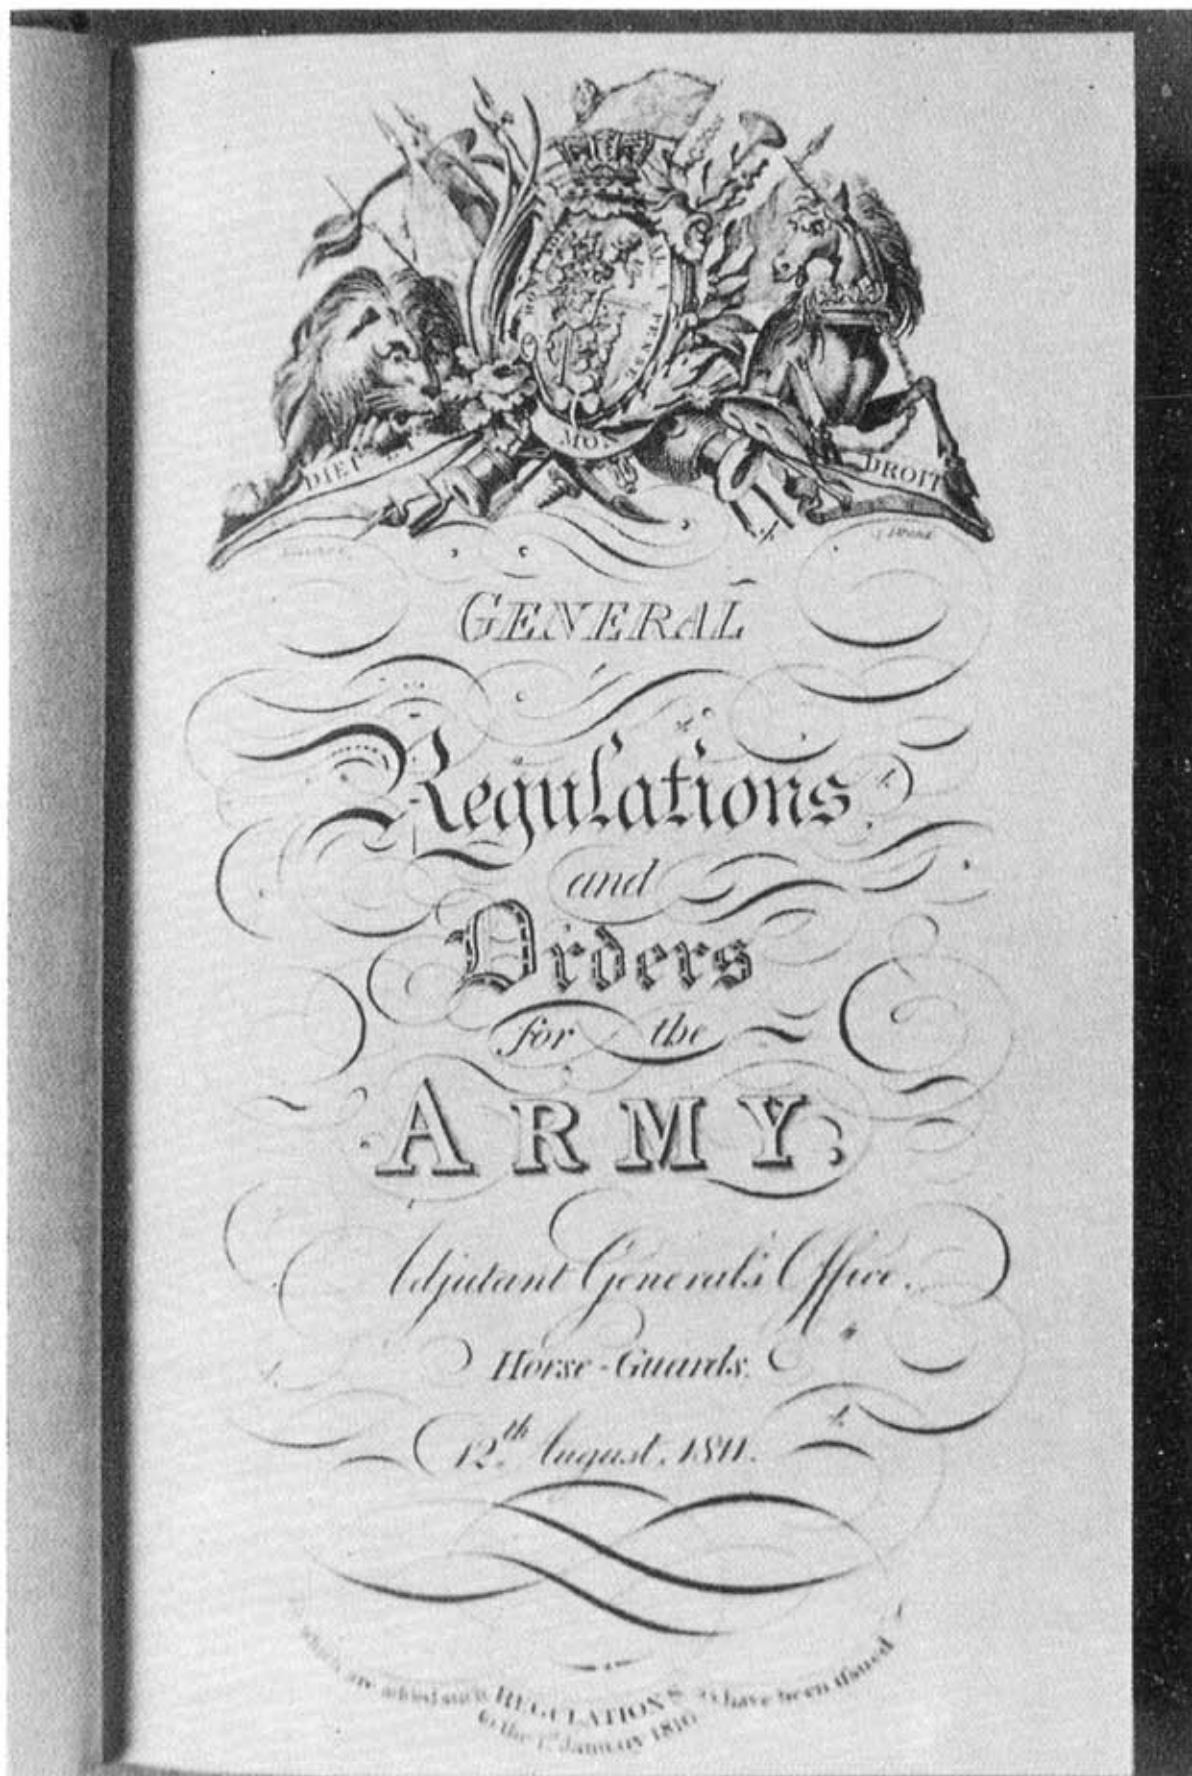 DIEU
MON
DROIT
GENERAL
Regulations
and
Orders
for the
ARMY;
Adjutant General's Office.
Horse-Guards.
12th August, 1811.
which are added such REGULATIONS as have been issued
to the 1st January 1816